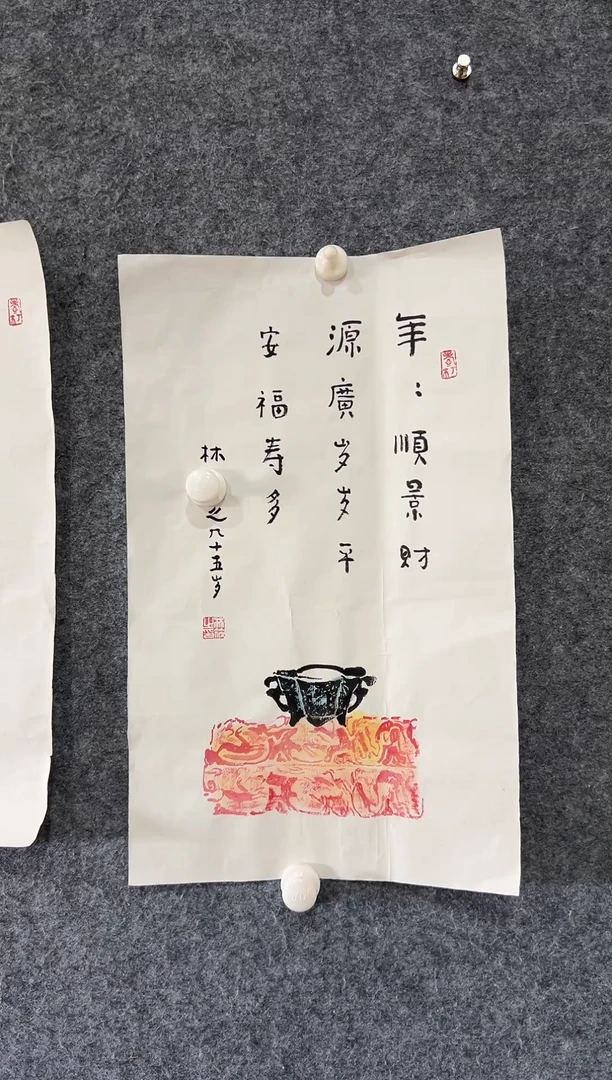 年：順景財
源廣岁岁平
安福寿多
林之八十五岁